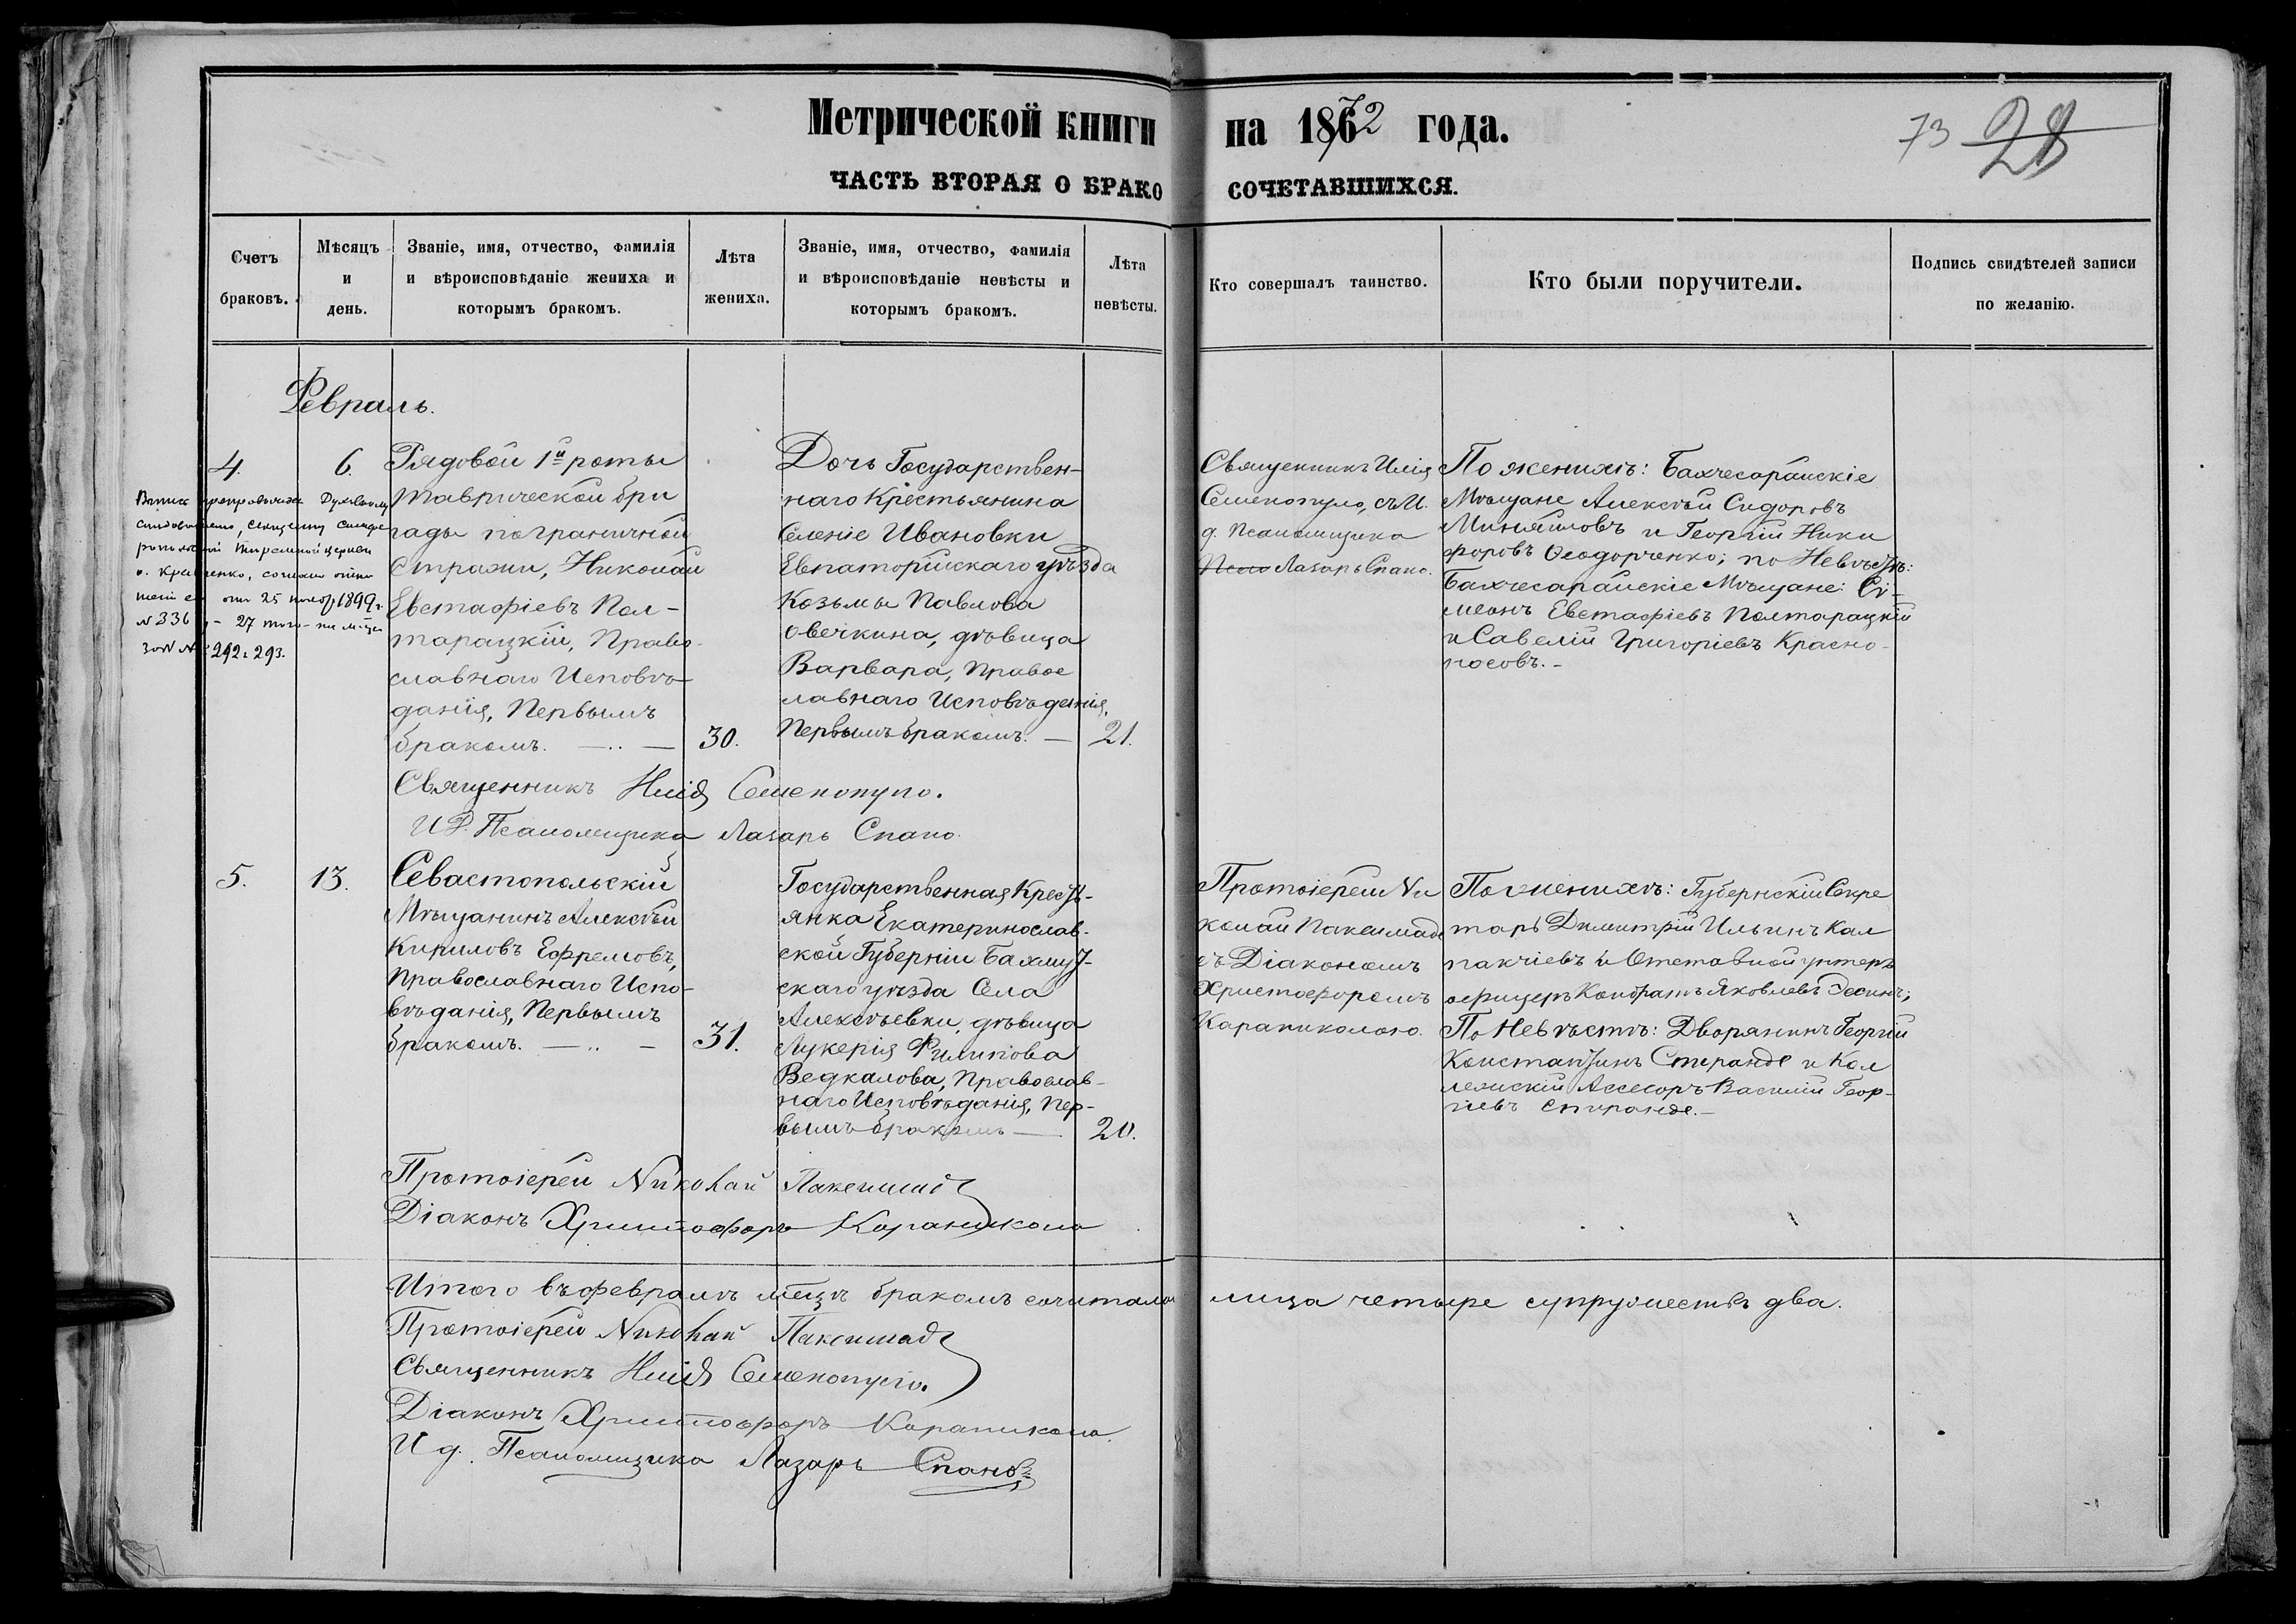 Метрической книги на 1872 года.
73 28
ЧАСТЬ ВТОРАЯ О БРАКОСОЧЕТАВШИХСЯ.
Счетъ браковъ.
Мѣсяцъ и день.
Званіе, имя, отчество, фамилія и вѣроисповѣданіе жениха и которымъ бракомъ.
Лѣта жениха.
Званіе, имя, отчество, фамилія и вѣроисповѣданіе невѣсты и которымъ бракомъ.
Лѣта невѣсты.
Кто совершалъ таинство.
Кто были поручители.
Подпись свидѣтелей записи по желанію.
Февраль.
4.
6.
от 25 1899 г.
№ 336 - 27 того-же
292 и 293.
Рядовой 1й роты
Таврической бри
гады пограничной
Стражи, Николай
Евстафіевъ Пол-
тарацкій, Право-
славнаго Исповѣ-
данія, Первымъ
бракомъ.
30.
Дочь Государствен-
наго Крестьянина
Селеніе Ивановки
Евпаторійскаго уѣзда
Козьмы Павлова
Овечкина, дѣвица
Варвара, Правос
лавнаго Исповѣданія,
Первымъ бракомъ.
21.
Священникъ Илія
Семенопуло, съ И.
д. Псаломщика
Псало Лазарь Спано.
По женихѣ: Бахчесарайскіе
Мѣщане Алексѣй Сидоровъ
Миняйловъ и Георгій Ники
форовъ Ѳеодорченко; по Невѣстѣ:
Бахчесарайскіе Мѣщане: Сі-
меонъ Евстафіевъ Полтарацкій
и Савелій Григоріевъ Красно-
носовъ.
Священникъ Илія Семенопуло.
И.Д. Псаломщика Лазарь Спано.
5.
13.
Севастопольскій
Мѣщанинъ Алексѣй
Кириловъ Ефремовъ,
Православнаго Испо-
вѣданія, Первымъ
бракомъ.
31.
Государственная Кресть-
янка Екатеринослав-
ской Губерніи Бахмут-
скаго уѣзда Села
Алексѣевки, дѣвица
Лукерія Филипова
Ведкалова, Православ-
наго Исповѣданія, Пер-
вымъ бракомъ
20.
Протоіерей Ни
колай Паксимаде
съ Діакономъ
Христофоромъ
Караниколою.
По женихѣ: Губернскій Секре
тарь Димитрій Ильинъ Кал
пакчіевъ и Отставной унтеръ
офицеръ Кондратъ Яковлевъ
По Невѣстѣ: Дворянинъ Георгій
Константинъ Спиранде и Кол
лежскій Ассесоръ Василій Геор-
гіевъ Спиранде.
Протоіерей Николай Паксимаде
Діаконъ Христофоръ Караникола
Итого въ февралѣ мѣсцѣ бракомъ сочитало лица четыре супружествъ два.
Протоіерей Николай Паксимаде
Священникъ Илія Семенопуло.
Діаконъ Христофоръ Караникола.
И д. Псаломщика Лазарь Спано